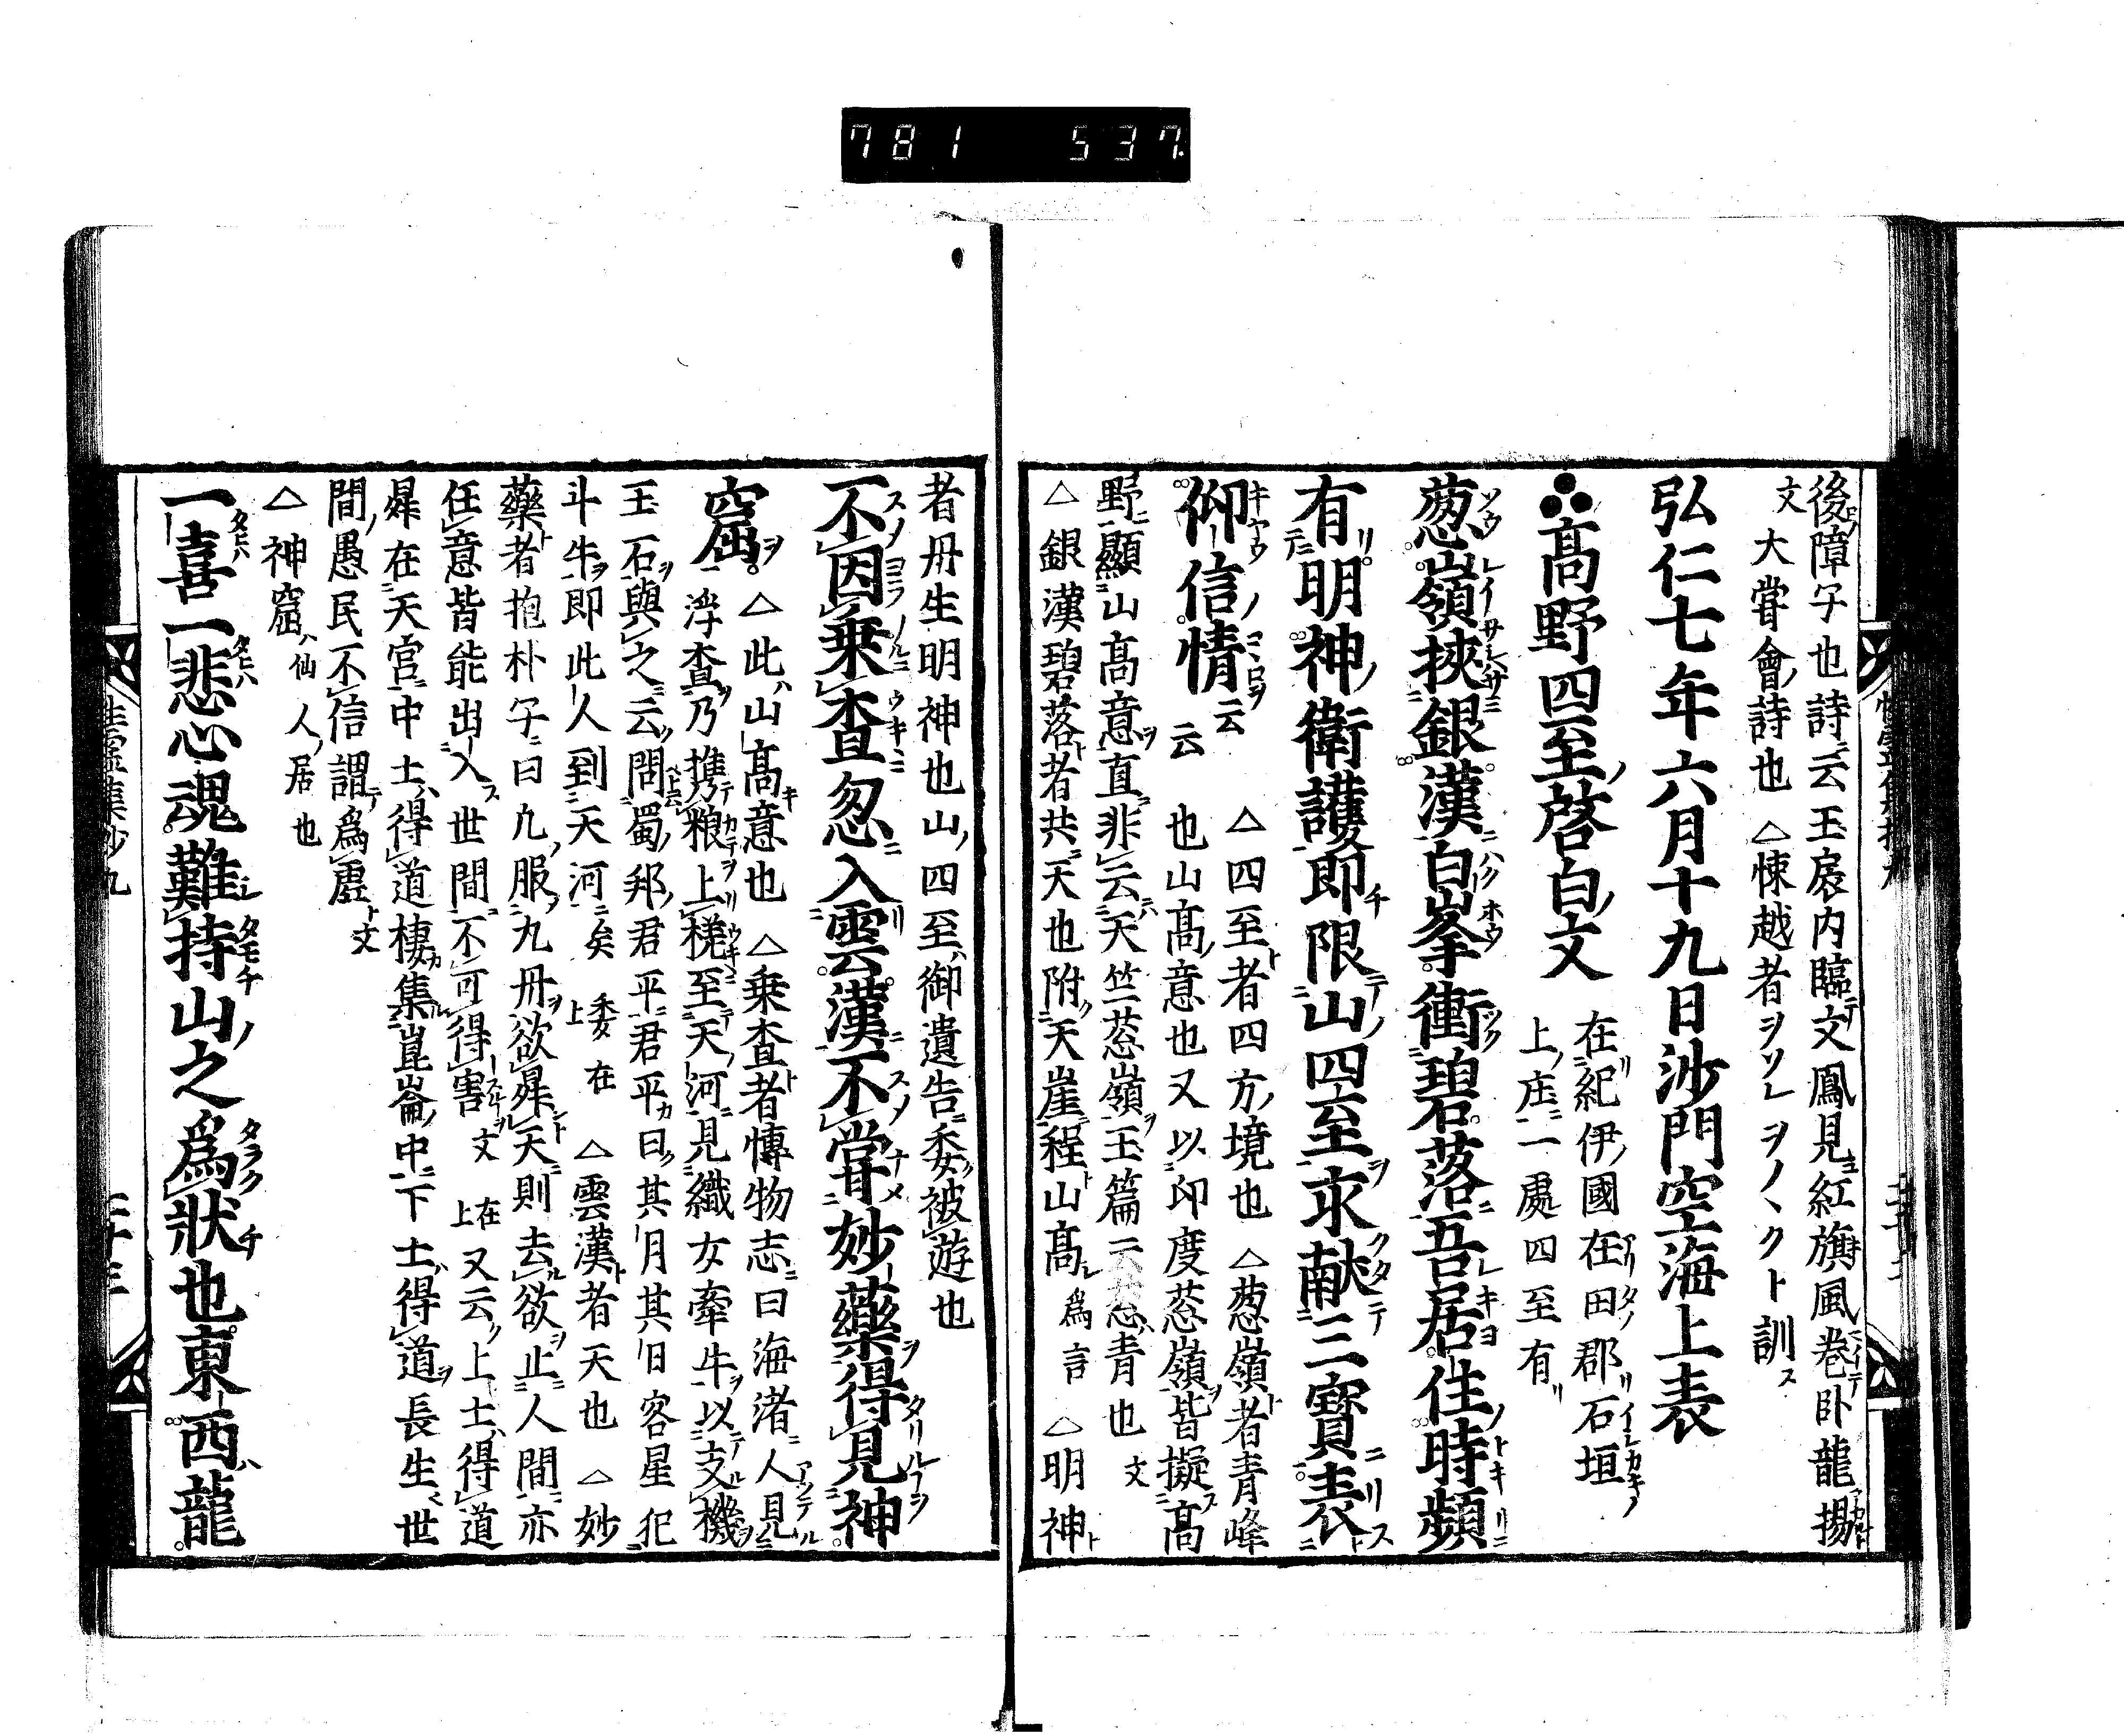 781 537.
後障子也詩云玉扆内臨文鳳見紅旗風巻卧龍揚
文 大甞會詩也 △悚越者ヲソレヲノヽクト訓ス
弘仁七年六月十九日沙門空海上表
高野四至啓白文 在紀伊國在田郡石垣上庄二一處四至有
葱嶺挾銀漢白峯衝碧落吾居住時頻
有明神衛護即限山四至求献三寶表
仰信情云云 △四至者四方境也 △葱嶺者青峰
也山高意也又以印度葱嶺皆擬高
野顯山高意直非云天竺葱嶺玉篇云葱青也文
△銀漢碧落者共天也附天崖程山高爲言 △明神
者丹生明神也山四至御遺告委被遊也
不因乗査忽入雲漢不甞妙藥得見神
窟 △此山高意也 △乗査者博物志曰海渚人見
浮査乃携粮上梯至天河見織女牽牛以支機
玉石與之云問蜀郡君平君平曰其月其日客星犯
斗牛即此人到天河矣委在上 △雲漢者天也 △妙
藥者抱朴子曰凡服九丹欲昇天則去欲止人間亦
任意皆能出入世間不可得害文在上又云上士得道
昇在天官中士得道棲集崑崙中下士得道長生世
間愚民不信謂爲虚文
△神窟仙人居也
一喜一悲心魂難持山之爲状也東西龍
性霊集抄九